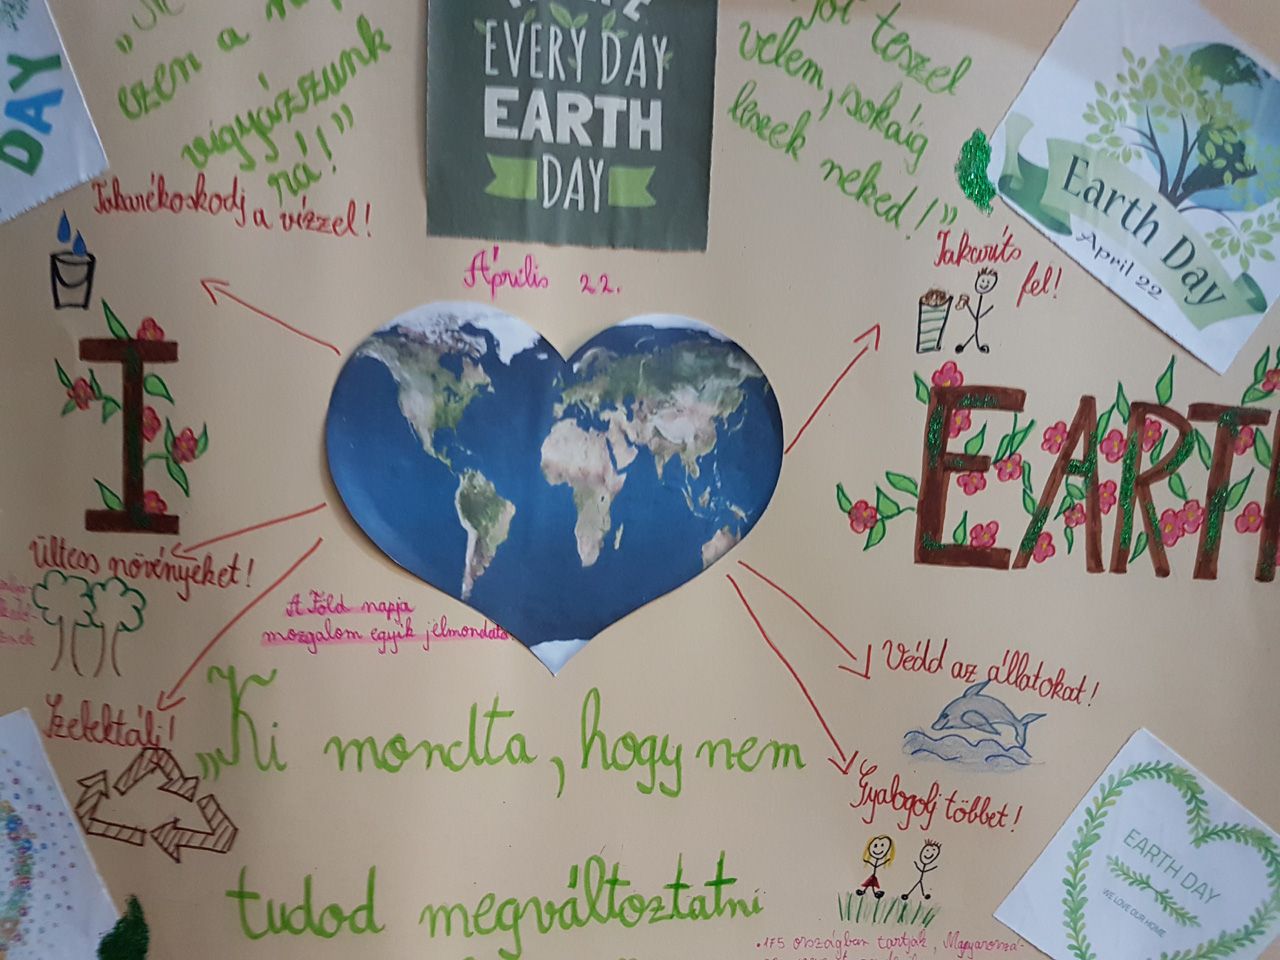 DAY
ezen a
vigyázzunk
rá!"
EVERY DAY
EARTH
DAY
jót teszel
velem, sokáig
leszek neked!"
Earth Day
April 22
Takarékoskodj a vízzel!
Április 22.
Takaríts
fel!
I
EART
Ültess növényeket!
A Föld napja
mozgalom egyik jelmondata
Védd az állatokat!
Szelektálj!
„Ki mondta, hogy nem
Gyalogolj többet!
EARTH DAY
WE LOVE OUR HOME
tudod megváltoztatni
•175 országban tartják, Magyarorszá-